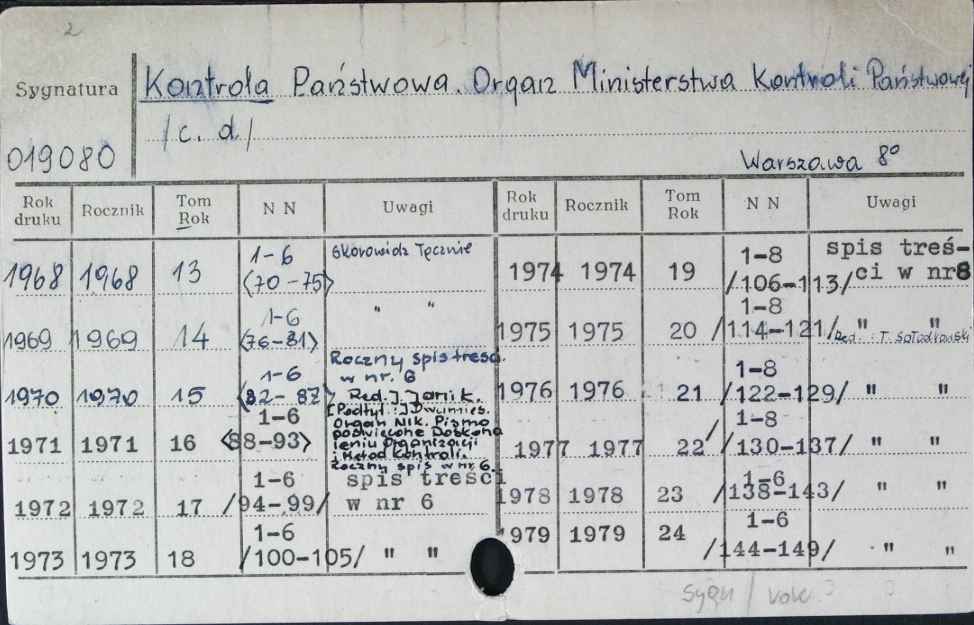 2
Sygnatura Kontrola Państwowa. Organ Ministerstwa Kontroli Państwowej
/c. d/
019080 Warszawa 8°
Rok druku Rocznik Tom Rok N N Uwagi Rok druku Rocznik Tom Rok N N Uwagi
1968 1968 13 1-6 <70-75> Skorowidz Tęcznie
1969 1969 14 1-6 <76-81> " "
1970 1970 15 1-6 <82-87> Roczny spis treści w nr. 6
1971 1971 16 1-6 <88-93> Red. J. Janik.
[Podtyt.:] Dwumies.
Organ NIK. Pismo
poświęcone Doskona
leniu Organizacji
i Metod Kontroli.
Roczny spis w nr 6.
1972 1972 17 1-6 /94-99/ spis treści w nr 6
1973 1973 18 1-6 /100-105/ " "
1974 1974 19 1-8 /106-113/ spis treś-
ci w nr 8
1975 1975 20 1-8 /114-121/ " "
Red.: T.
1976 1976 21 1-8 /122-129/ " "
1977 1977 22 1-8 /130-137/ " "
1978 1978 23 1-6 /138-143/ " "
1979 1979 24 1-6 /144-149/ " "
sygn /